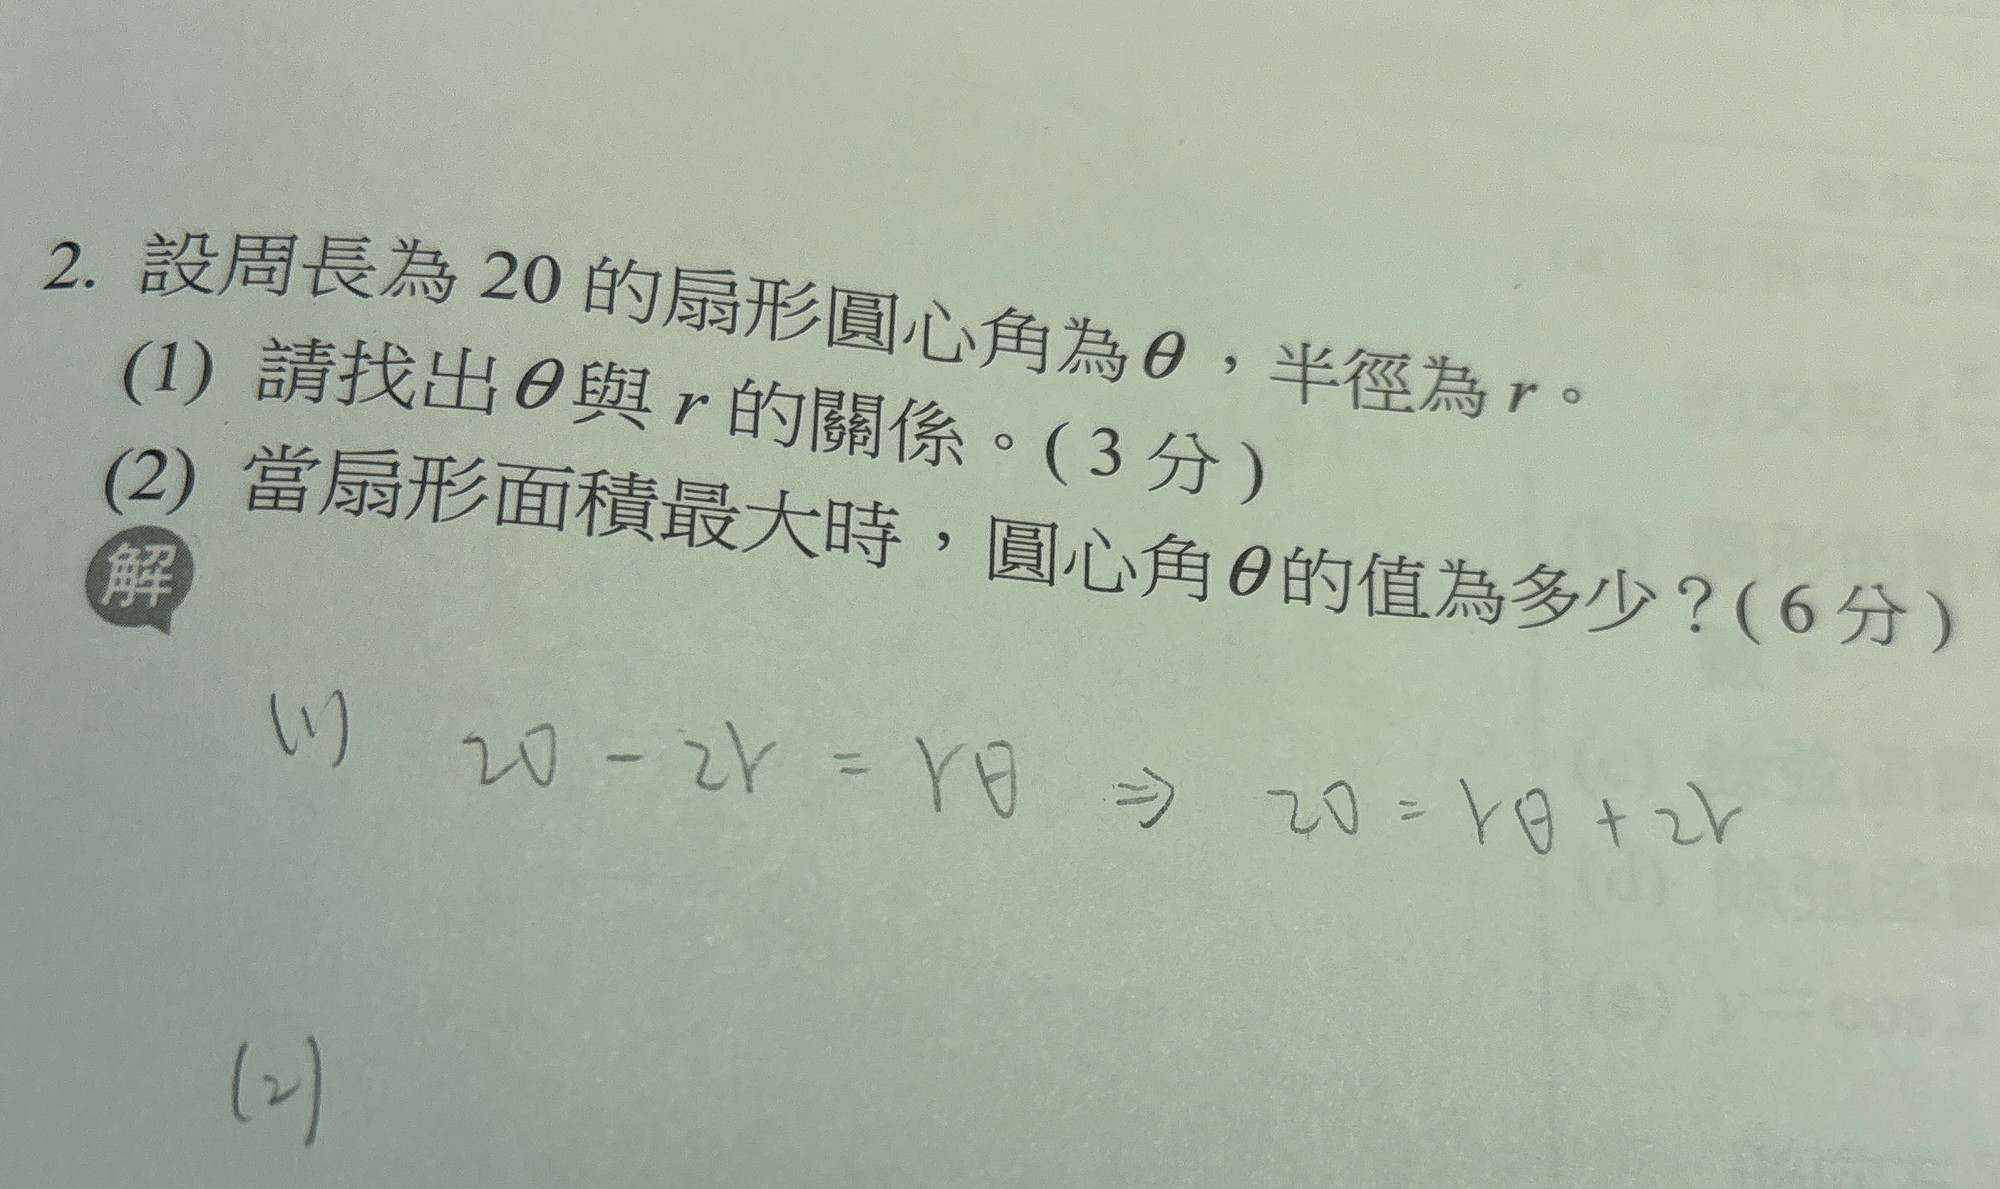 2. 設周長為 20 的扇形圓心角為θ，半徑為 r。
(1) 請找出θ與 r 的關係。(3 分)
(2) 當扇形面積最大時，圓心角θ的值為多少？(6 分)
解
(1) 20 - 2r = rθ ⇒ 20 = rθ + 2r
(2)